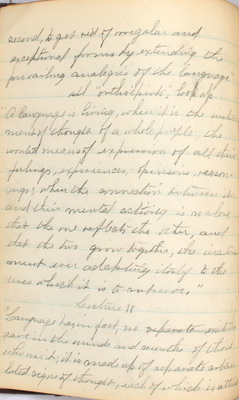 second, to get rid of irregular and
exceptional forms by extending the
prevailing analogies of the language
look up
"A language is living, when it is the instru
ment of thought of a whole people, the
wonted means of expression of all their
feelings, experiences, opinions, reason-
ings; when the connection between it
and their mental activity is so close
that the one reflects the other, and
that the two grow together, the instru
ment ever adapting itself to the
uses which it is to subserve."
Lecture II
"Language has, in fact, no separate existence
save in the minds and mouths of those
who use it; it is made up of separate articu
lated signs of thought, each of which is attached